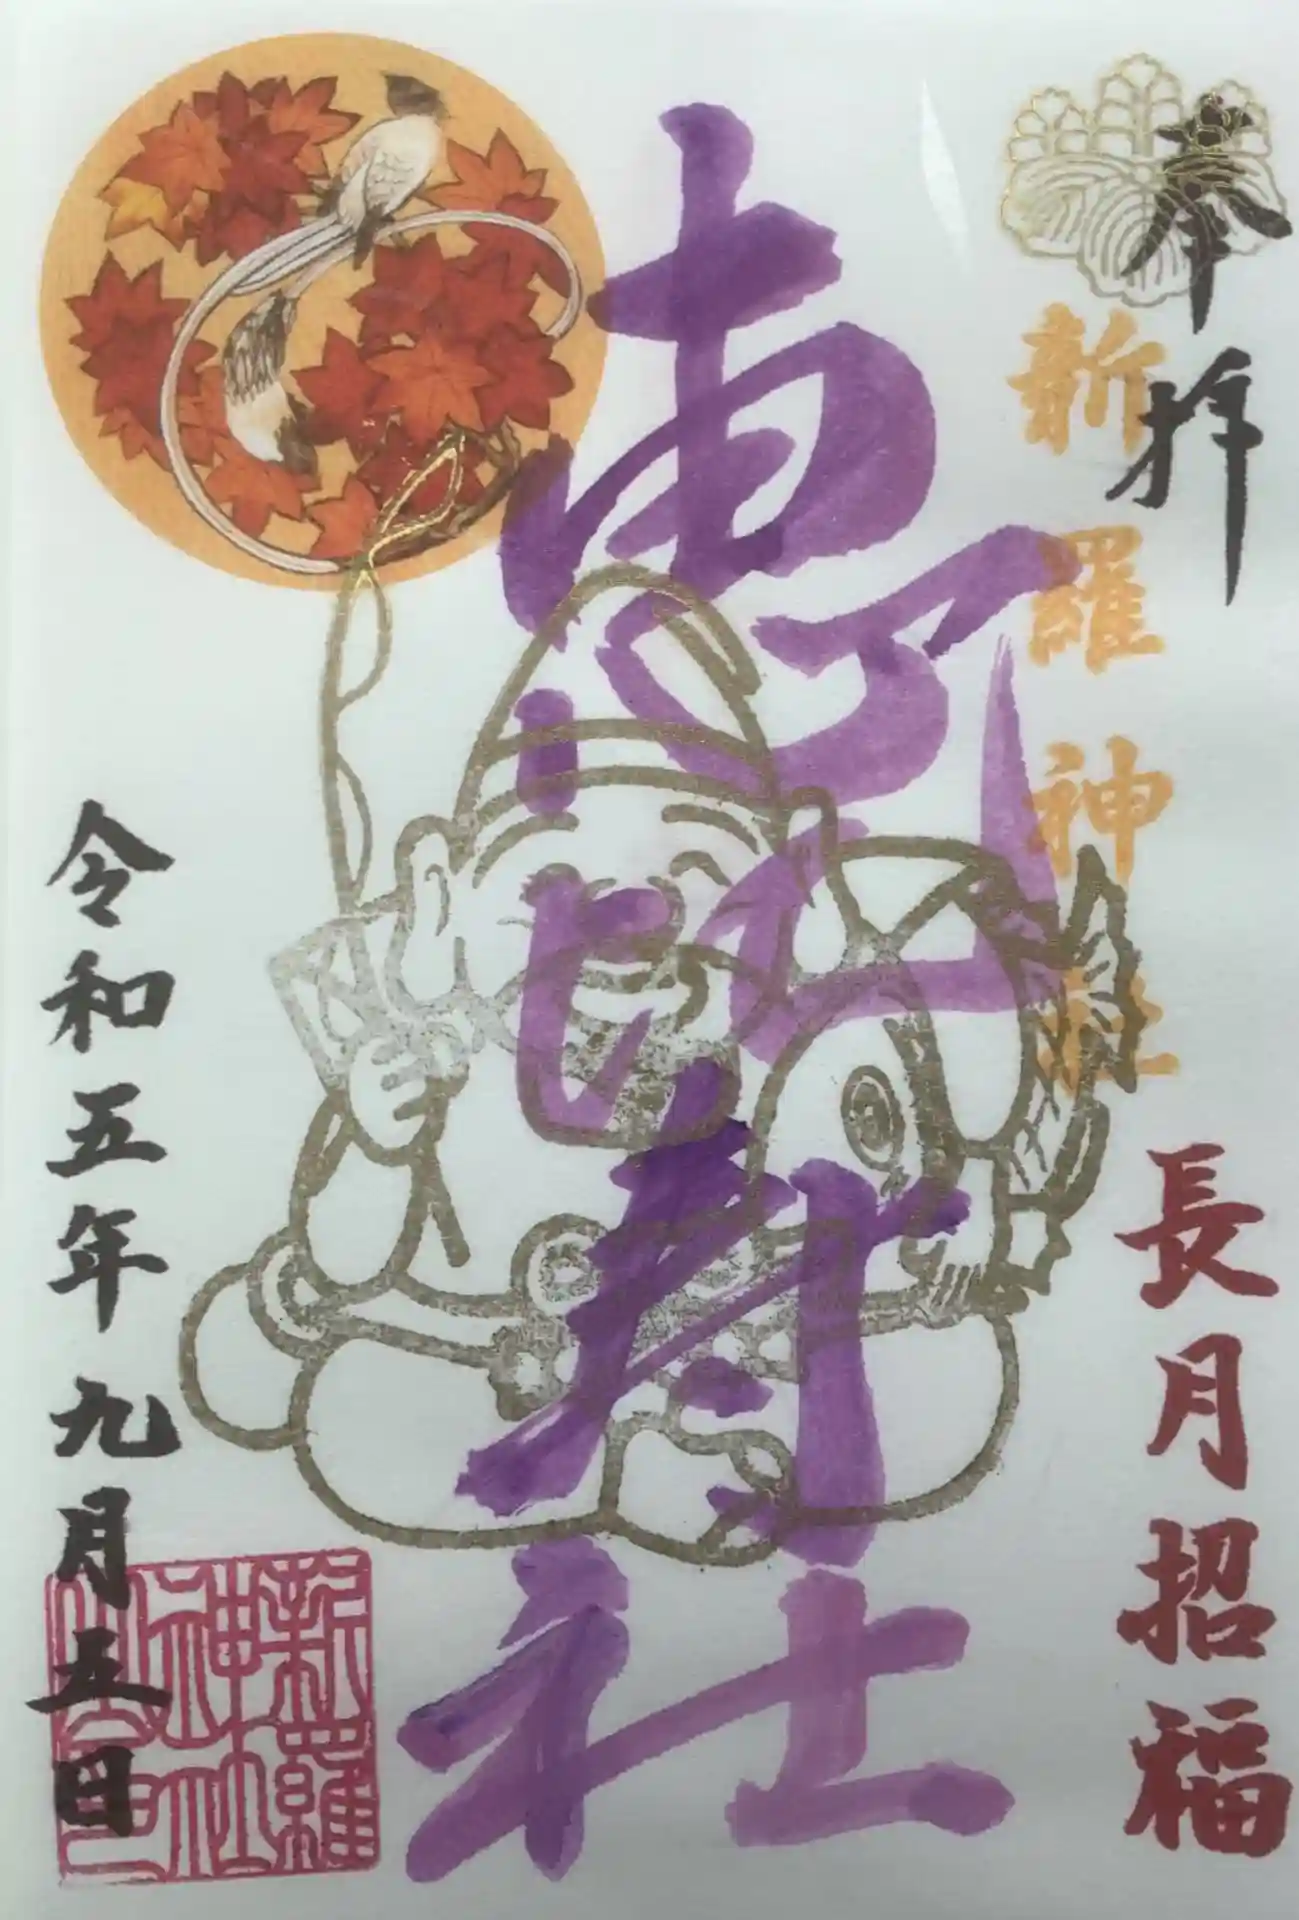 奉拝
新羅神社
長月招福
恵比寿社
令和五年九月五日
新羅
神社